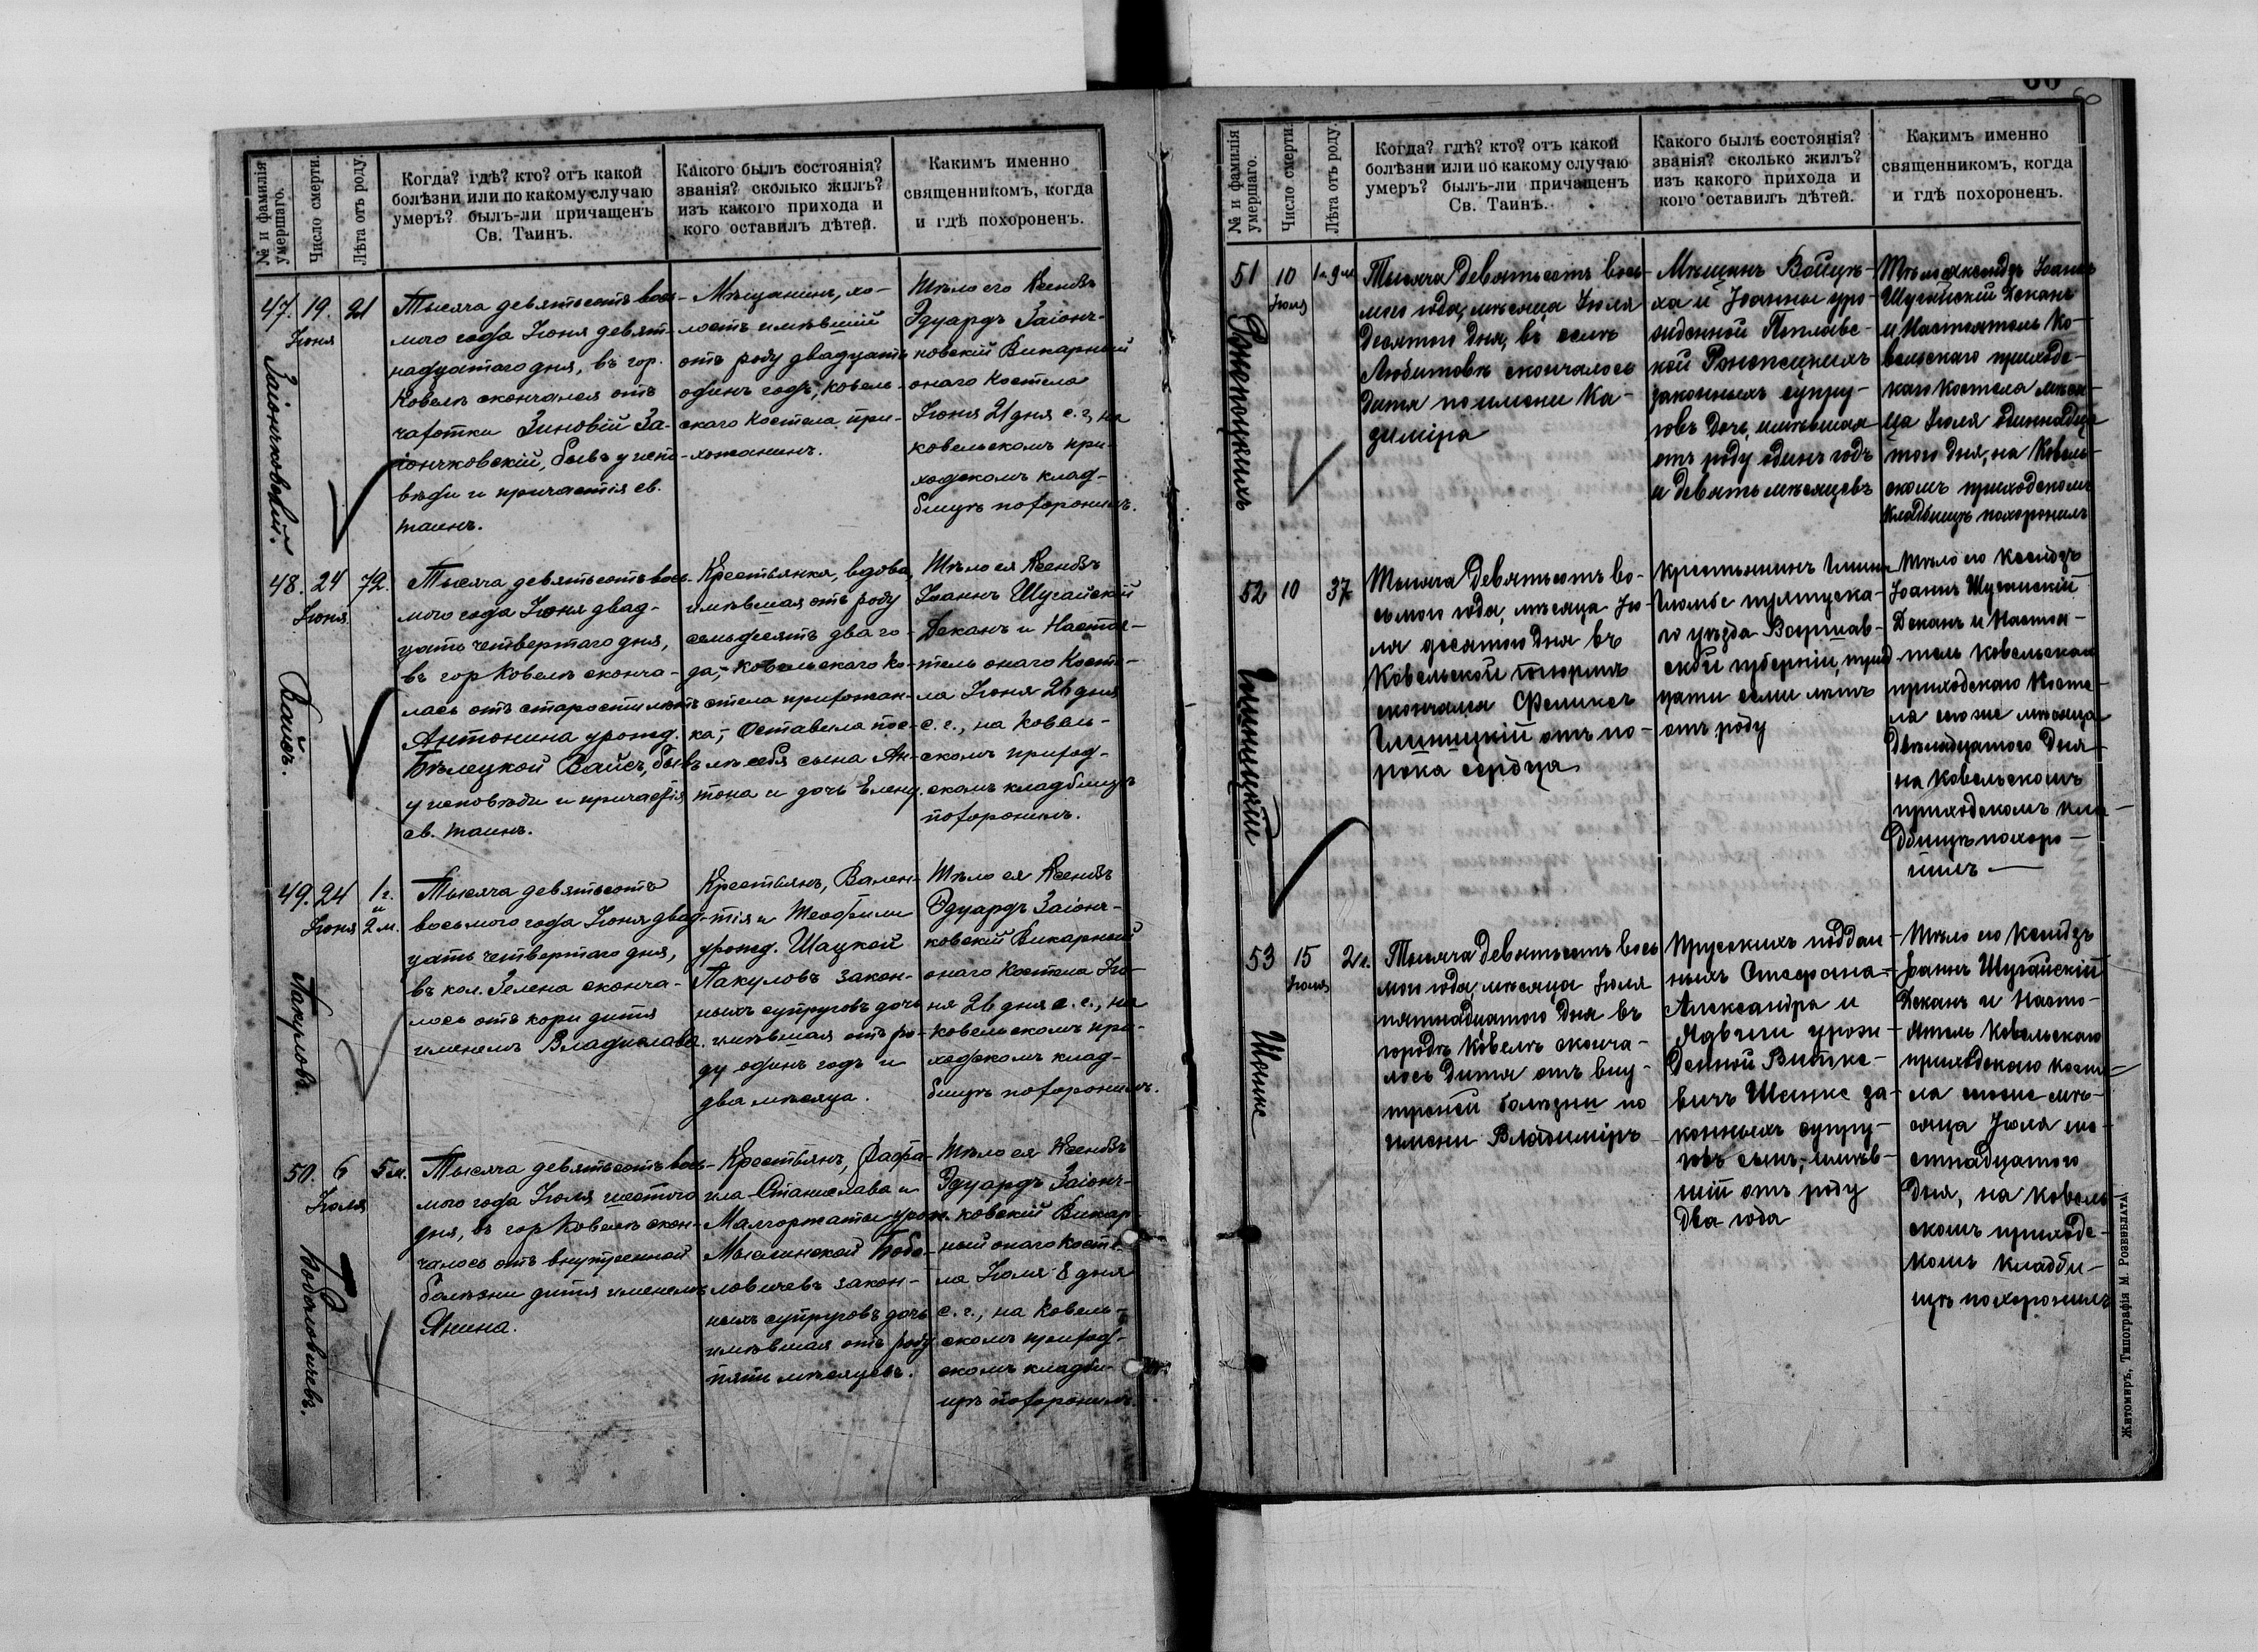 № и фамилія умершаго.
Число смерти.
Лѣта отъ роду.
Когда? гдѣ? кто? отъ какой
болѣзни или по какому случаю
умеръ? былъ-ли причащенъ
Св. Таинъ.
Какого былъ состоянія?
званія? сколько жилъ?
изъ какого прихода и
кого оставилъ дѣтей.
Какимъ именно
священникомъ, когда
и гдѣ похороненъ.
47. 19. 21
Іюня
Заіончковскій.
Тысяча девятьсотъ вось-
мого года Іюня девят-
надцатого дня, въ гор.
Ковелѣ скончался отъ
чахотки Зиновій За-
іончковскій, бывъ у испо-
вѣди и причастія св.
таинъ.
Мѣщанинъ, хо-
лостъ имѣвшій
отъ роду двадцать
одинъ годъ, ковель-
скаго костела при-
хожанинъ.
Тѣло его Ксендзъ
Эдуардъ Заіонч-
ковскій Викарный
онаго Костела
Іюня 21 дня с. г, на
ковельскомъ при-
ходскомъ клад-
бищѣ похоронилъ.
48. 24 72.
Іюня
Вайсъ.
Тысяча девятьсотъ вось-
мого года Іюня двад-
цать четвертаго дня,
въ гор Ковелѣ сконча-
лась отъ старости лѣтъ
Антонина урожд.
Бѣлецкой Вайсъ, бывъ
у исповѣди и причастія
св. таинъ.
Крестьянка, вдова,
имѣвшая отъ роду
семьдесятъ два го-
да,- Ковельскаго ко-
стела прихожан-
ка,- Оставила пос-
лѣ себя сына Ан-
тона и дочь Елену.
Тѣло ея Ксендзъ
Іоаннъ Шугайскій
Деканъ и Настоя-
тель онаго Косте-
ла Іюня 26 дня
с. г., на Ковель-
скомъ приход-
скомъ кладбищѣ
похоронилъ.
49. 24 1 г.
и
Іюня 2 м.
Пакуловъ.
Тысяча девятьсотъ
восьмого года Іюня двад-
цать четвертаго дня,
въ кол. Зелена сконча-
лось отъ кори дитя
именемъ Владислава.
Крестьянъ, Вален-
тія и Теофили
урожд. Шацкой
Пакуловъ закон-
ныхъ супруговъ дочь
имѣвшая отъ ро-
ду одинъ годъ и
два мѣсяца.
Тѣло ея Ксендзъ
Эдуардъ Заіонч-
ковскій Викарный
онаго Костела Ію-
ня 26 дня с. г., на
ковельскомъ при-
ходскомъ клад-
бищѣ похоронилъ.
50. 6 5 м.
Іюля
Бобаловичевъ.
Тысяча девятьсотъ вось-
мого года Іюля шестого
дня, въ гор Ковелѣ скон-
чалось отъ внутренной
болѣзни дитя именемъ
Янина.
Крестьянъ, Рафа-
ила-Станислава и
Малгоржаты урож.
Мыслинской Бобо-
ловичевъ закон-
ныхъ супруговъ дочь
имѣвшая отъ роду
пять мѣсяцевъ.
Тѣло ея Ксендзъ
Эдуардъ Заіонч-
ковскій Викар-
ный онаго Косте-
ла Іюля 8 дня
с. г., на Ковель-
скомъ приход-
скомъ кладби-
щѣ похоронилъ.
60
№ и фамилія умершаго.
Число смерти.
Лѣта отъ роду.
Когда? гдѣ? кто? отъ какой
болѣзни или по какому случаю
умеръ? былъ-ли причащенъ
Св. Таинъ.
Какого былъ состоянія?
званія? сколько жилъ?
изъ какого прихода и
кого оставилъ дѣтей.
Какимъ именно
священникомъ, когда
и гдѣ похороненъ.
51 10 1 г. 9 м
Іюля
Тысяча девятьсотъ вось-
мого года, мѣсяца Іюля
десятого дня, въ селѣ
Любитовѣ скончалось
дитя по имени Ка-
зиміра
Мѣщанъ Войцѣ-
ха и Іоанны уро-
жденной Поплавс-
кой
законныхъ супру-
говъ дочь, имѣвшая
отъ роду одинъ годъ
и девять мѣсяцевъ
Тѣло ея ксендзъ Іоаннъ
Шугайскій Деканъ
и Настоятель Ко-
вельскаго приходс-
каго костела мѣся-
ца Іюля одиннадца-
того дня, на Ковель-
скомъ приходскомъ
кладбищѣ похоронилъ
52 10 37
Тысяча девятьсотъ во-
сьмого года, мѣсяца Ію-
ля десятого дня въ
Ковельской тюрьмѣ
скончался Феликсъ
отъ по-
рока сердца
Крестьянинъ гмины
пултуска-
го уѣзда Варшав-
ской губерніи, трид-
цати семи лѣтъ
отъ роду
Тѣло его ксендзъ
Іоаннъ Шугайскій
Деканъ и Настоя-
тель Ковельскаго
приходскаго косте-
ла сего же мѣсяца
двѣнадцатого дня
на Ковельскомъ
приходскомъ кла-
дбищѣ похоро-
нилъ
53 15 2 г.
Іюля
Шенке
Тысяча девятьсотъ вось
мого года, мѣсяца Іюля
пятнадцатого дня въ
городѣ Ковелѣ сконча-
лось дитя отъ вну-
тренней болѣзни по
имени Владиміръ
Прусскихъ поддан-
ныхъ Стефана-
Александра и
Ядвиги урож-
денной Витке-
вичъ Шенке за-
конныхъ супру-
говъ сынъ, имѣв-
шій отъ роду
два года
Тѣло его ксендзъ
Іоаннъ Шугайскій
Деканъ и Насто-
ятель Ковельскаго
приходскаго косте-
ла сего же мѣ-
сяца Іюля ше-
стнадцатого
дня, на Ковель-
скомъ приходс-
комъ кладби-
щѣ похоронилъ
Житомиръ, Типографія М. Розенблата